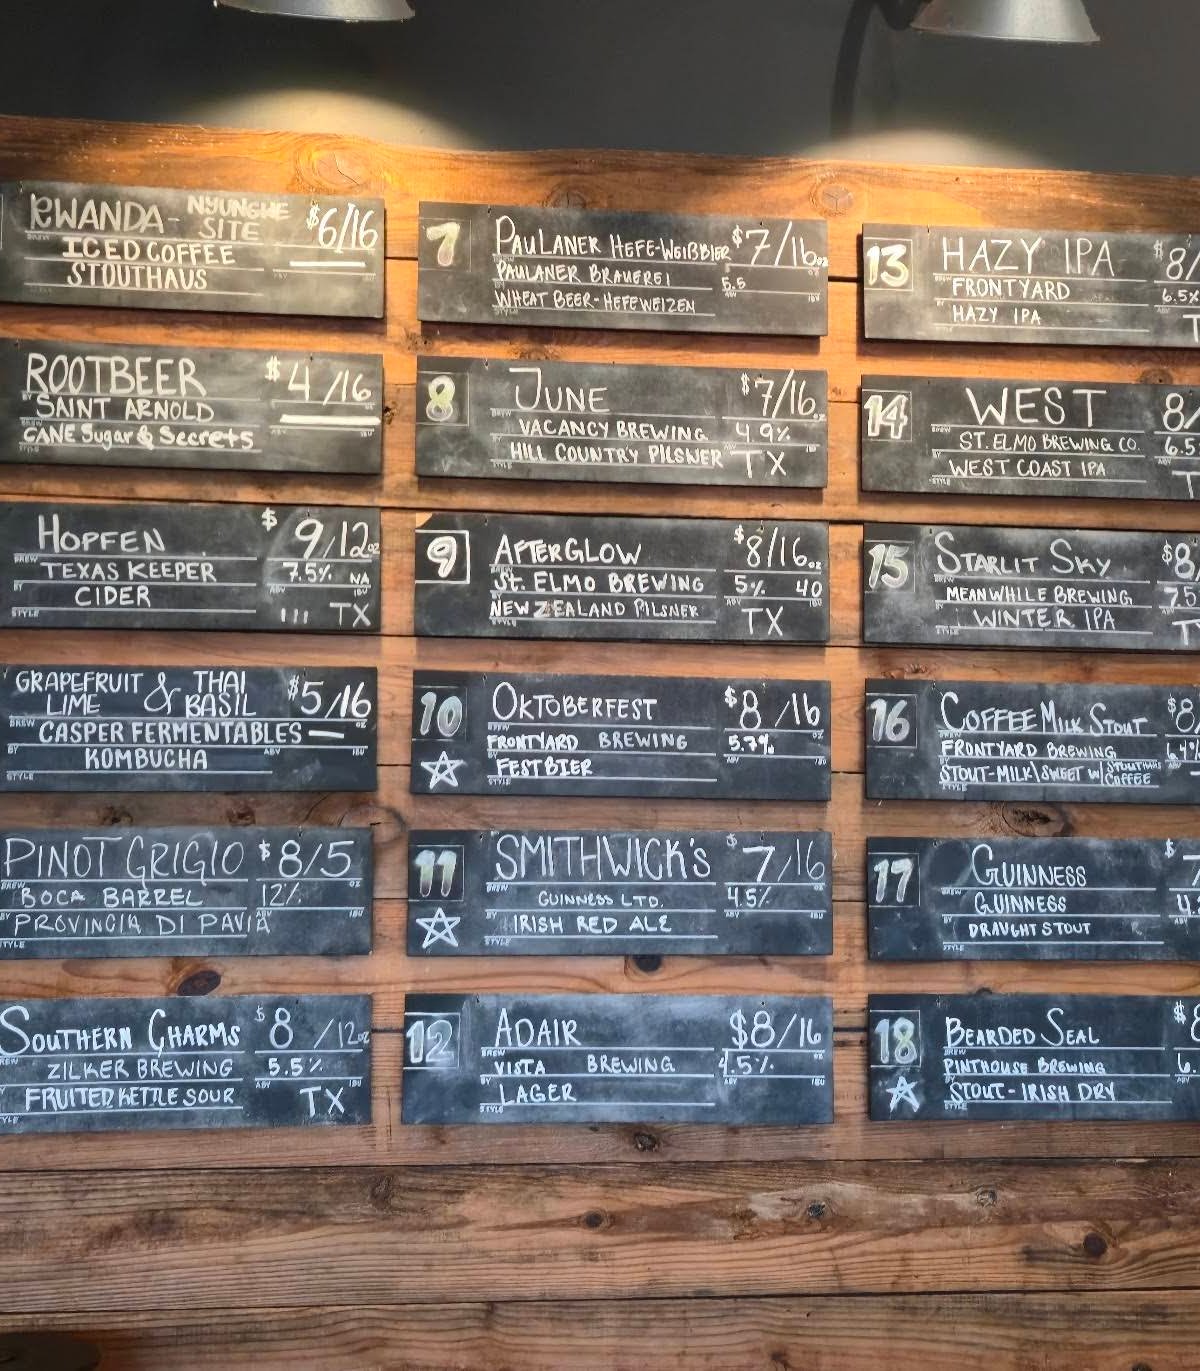 RWANDA - NYUNGWE SITE $6/16
ICED COFFEE
STOUTHAUS
ROOTBEER $4/16
SAINT ARNOLD
CANE Sugar & Secrets
HOPFEN $9/12oz
TEXAS KEEPER 7.5% NA
CIDER TX
GRAPEFRUIT LIME & THAI BASIL $5/16
CASPER FERMENTABLES
KOMBUCHA
PINOT GRIGIO $8/5
BOCA BARREL 12%
PROVINCIA DI PAVIA
SOUTHERN CHARMS $8/12oz
ZILKER BREWING 5.5%
FRUITED KETTLE SOUR TX
7 PAULANER HEFE-WEIßBIER $7/16oz
PAULANER BRAUEREI 5.5
WHEAT BEER-HEFEWEIZEN
8 JUNE $7/16oz
VACANCY BREWING 4.9%
HILL COUNTRY PILSNER TX
9 AFTERGLOW $8/16oz
St. ELMO BREWING 5% 40
NEW ZEALAND PILSNER TX
10 OKTOBERFEST $8/16
FRONTYARD BREWING 5.7%
FESTBIER
11 SMITHWICK'S $7/16
GUINNESS LTD. 4.5%
IRISH RED ALE
12 ADAIR $8/16
VISTA BREWING 4.5%
LAGER
13 HAZY IPA $8/
FRONTYARD 6.5%
HAZY IPA T
14 WEST 8/
ST. ELMO BREWING CO. 6.5
WEST COAST IPA T
15 STARLIT SKY $8
MEANWHILE BREWING 7.5
WINTER IPA T
16 COFFEE MILK STOUT $8
FRONTYARD BREWING 6.4%
STOUT-MILK\SWEET w/ STOUTHAUS COFFEE
17 GUINNESS $7
GUINNESS 4.
DRAUGHT STOUT
18 BEARDED SEAL $8
PINTHOUSE BREWING 6.
STOUT-IRISH DRY